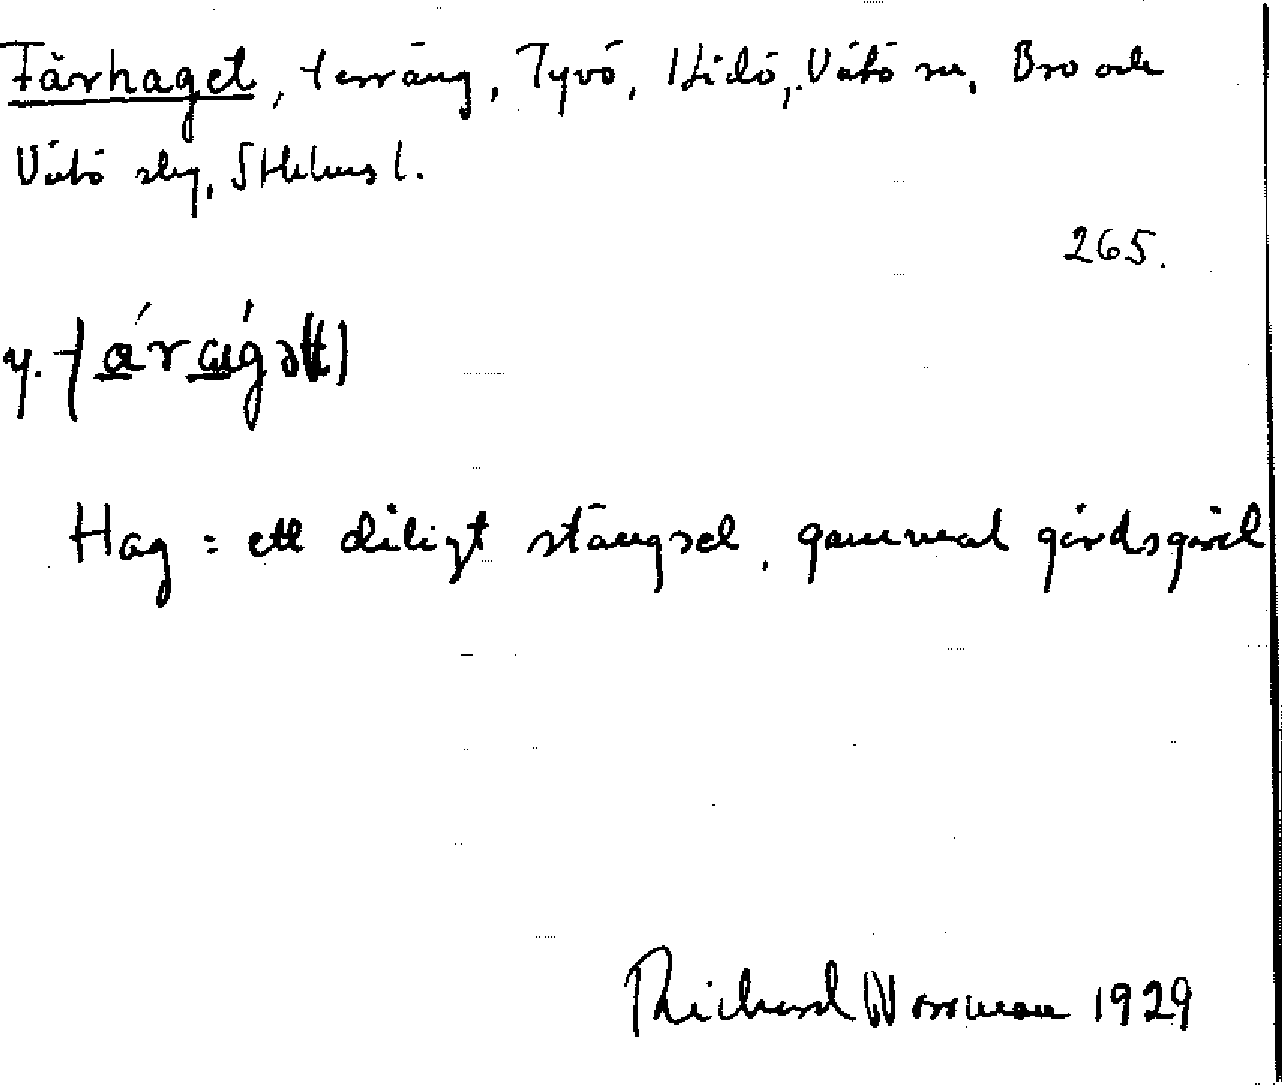 Fårhaget, terräng, Tyvö, Hidö, Vätö sn, Bro och
Vätö slg, Sthlms l.
265.
y. fárɑgət)
Hag = ett dåligt stängsel, gammal gärdsgård
Richard Norrman 1929